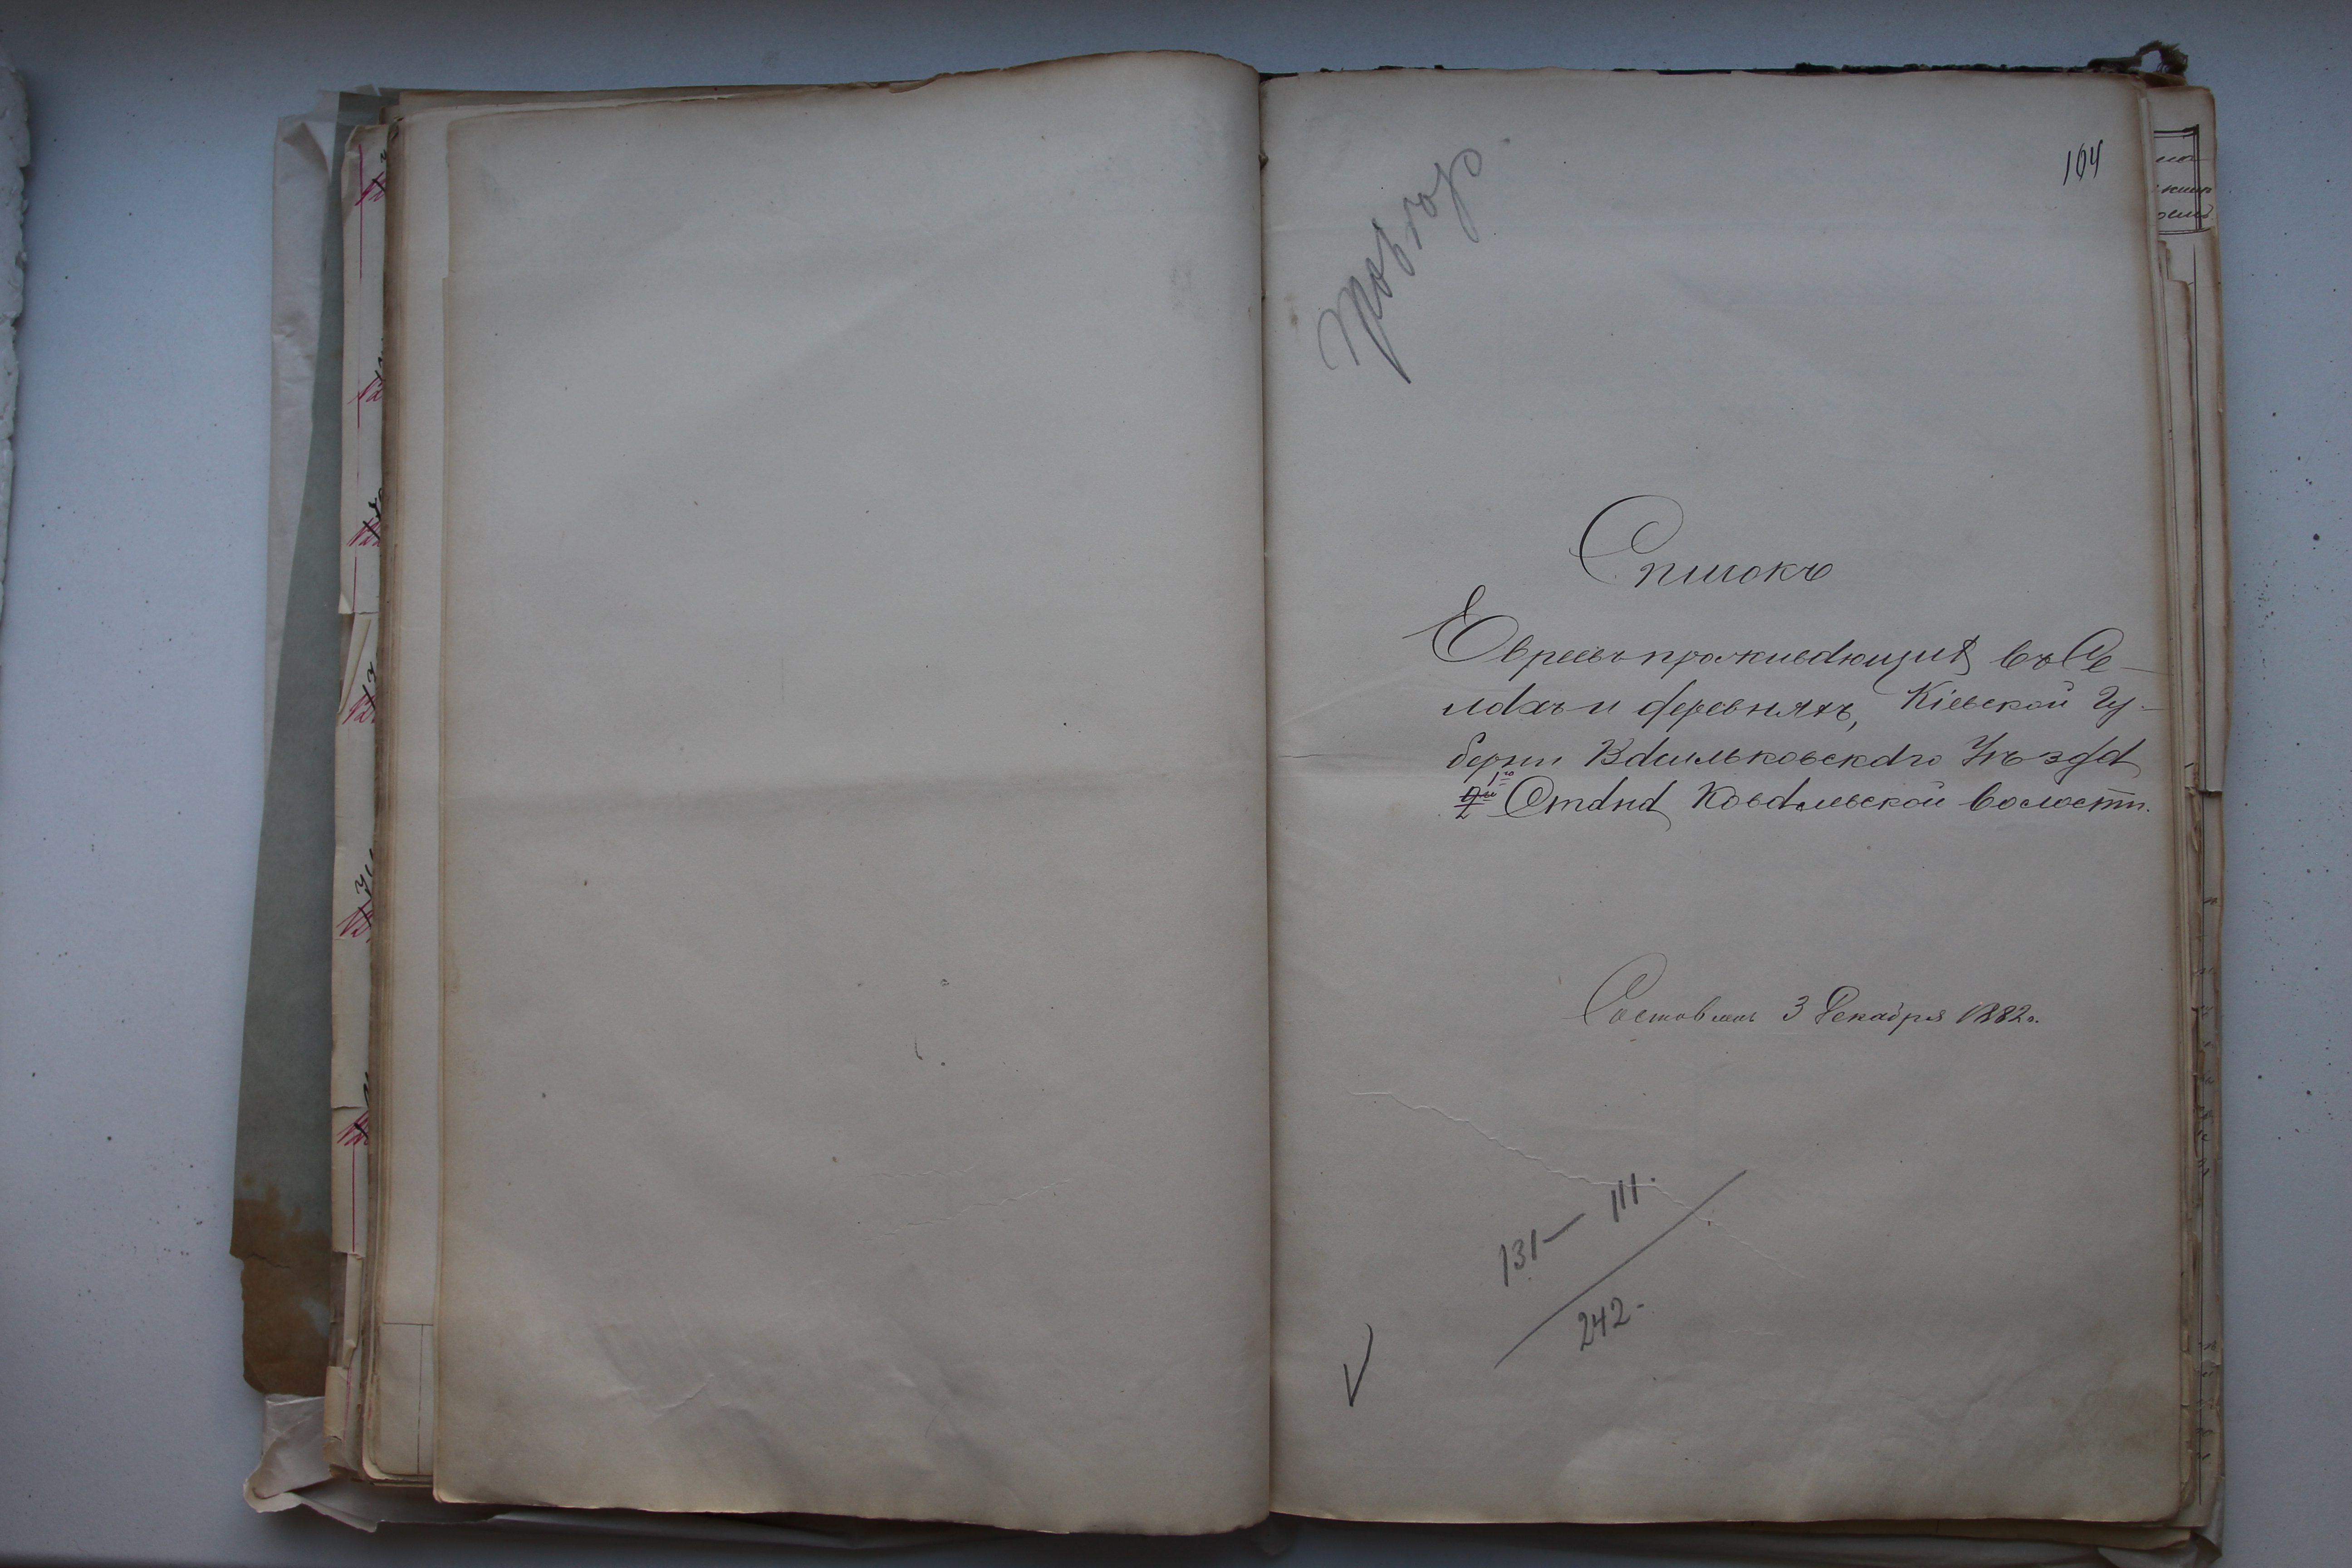 104
Списокъ
Евреевъ проживающихъ въ Се-
лахъ и деревняхъ, Кіевской Гу-
берніи Васильковского Уѣзда
1го Стана Ковалевской волости.
Составленъ 3 Декабря 1882 г.
131 — 111.
242 -